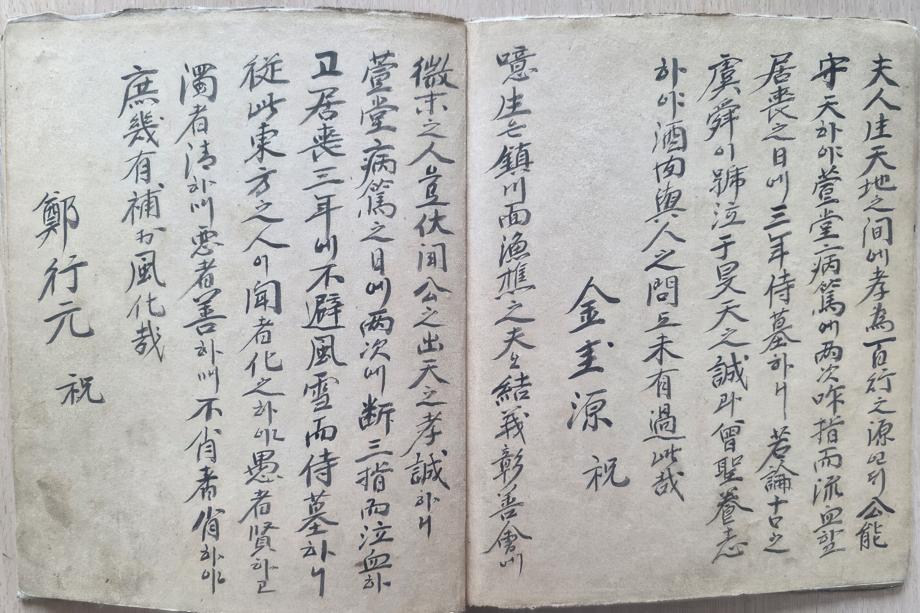 夫人生天地之间애孝為百行之源인되公能
守天하야萱堂病篤애两次咋指而流血하고
居喪之日애三年侍墓하니若論古之
虞舜이號泣于旻天之誠과曾聖養志
하야酒肉與人之問도未有過此哉
金圭源 祝
噫生七鎮川面漁樵之夫로結義彰善會애
微末之人豈伏闻公之出天之孝誠하니
萱堂病篤之日애两次애断三指而泣血하
고居喪三年애不避風雪而侍墓하니
従此東方之人이闻者化之하야愚者賢하고
濁者清하며惡者善하며不肖者肖하야
庶幾有補於風化哉
鄭行元 祝